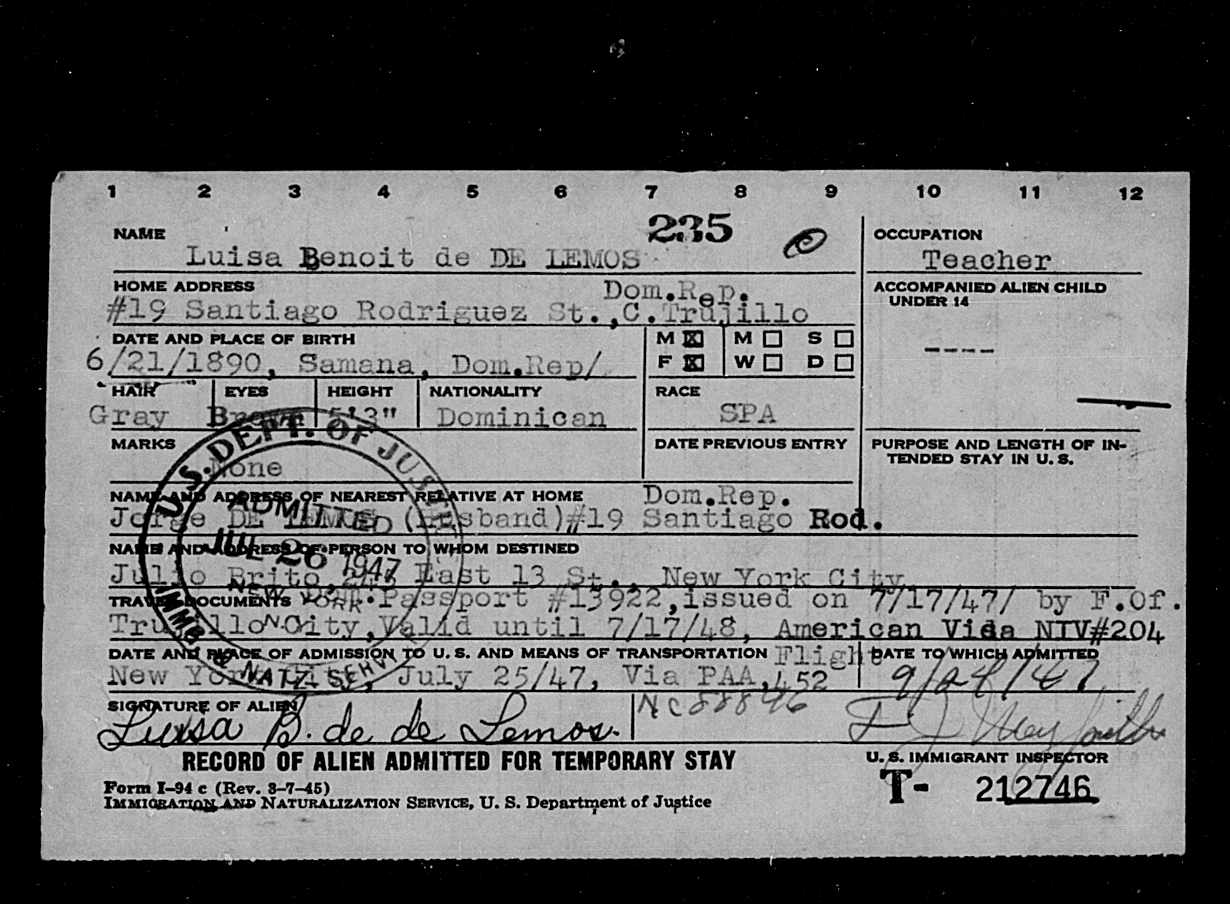 1 2 3 4 5 6 7 8 9 10 11 12
235
NAME
Luisa Benoit de DE LEMOS
OCCUPATION
Teacher
HOME ADDRESS
Dom.Rep.
#19 Santiago Rodriguez St.,C.Trujillo
ACCOMPANIED ALIEN CHILD
UNDER 14
----
DATE AND PLACE OF BIRTH
6/21/1890, Samana, Dom.Rep/
M ☒ M ☐ S ☐
F ☒ W ☐ D ☐
HAIR EYES HEIGHT NATIONALITY RACE
Gray Brown 5'3" Dominican SPA
MARKS
None
DATE PREVIOUS ENTRY
PURPOSE AND LENGTH OF IN-
TENDED STAY IN U. S.
NAME AND ADDRESS OF NEAREST RELATIVE AT HOME
Dom.Rep.
Jorge DE LEMOS (Husband)#19 Santiago Rod.
NAME AND ADDRESS OF PERSON TO WHOM DESTINED
Julio Brito, East 13 St., New York City
TRAVEL DOCUMENTS
Dom. Passport #13922,issued on 7/17/47/ by F.Of.
Trujillo City,Valid until 7/17/48, American Visa NIV#204
DATE AND PLACE OF ADMISSION TO U. S. AND MEANS OF TRANSPORTATION
Flight
New York City, July 25/47, Via PAA,452
DATE TO WHICH ADMITTED
9/24/47
U.S. DEPT. OF JUSTICE
ADMITTED
JUL 26 1947
NEW YORK
N.Y.
IMMIG. & NATZ. SERV.
SIGNATURE OF ALIEN
Luisa B. de de Lemos.
NC88846
U. S. IMMIGRANT INSPECTOR
RECORD OF ALIEN ADMITTED FOR TEMPORARY STAY
T- 212746
Form I-94 c (Rev. 8-7-45)
IMMIGRATION AND NATURALIZATION SERVICE, U. S. Department of Justice